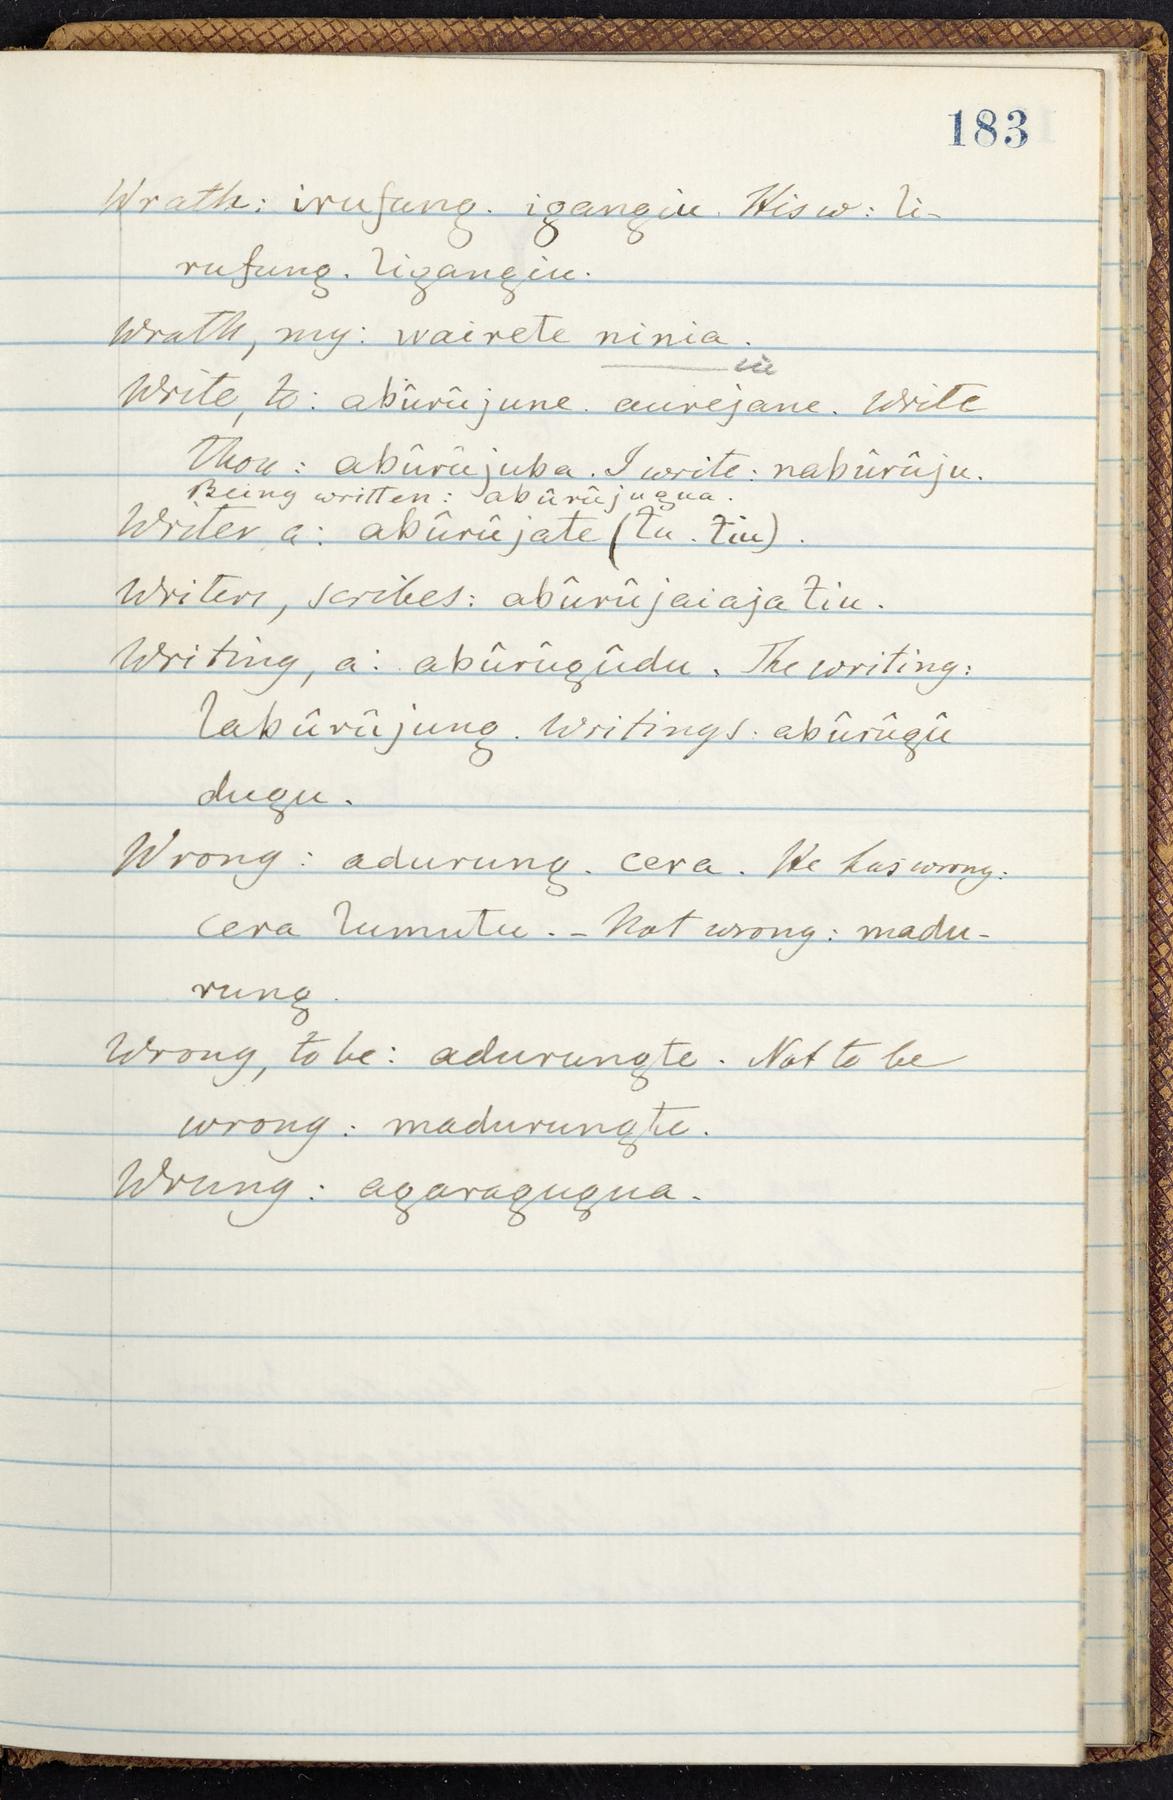 183
Wrath: irufung. igangiu. His w: li-
rufung. ligangiu.
Wrath, my: wairete ninia.
Write, to: abûrûjune. aurejane. Write
thou: abûrûjuba. I write: nabûrûju.
Being written: abûrûjugua.
Writer a: abûrûjate (tu. tiu).
Writers, scribes: abûrûjaiajatiu.
Writing, a: abûrûgûdu. The writing:
labûrûjung. Writings: abûrûgû
dugu.
Wrong: adurung. cera. He has wrong:
cera lumutu. - Not wrong: madu-
rung.
Wrong, to be: adurungte. Not to be
wrong: madurungte.
Wrung: agaragugua.